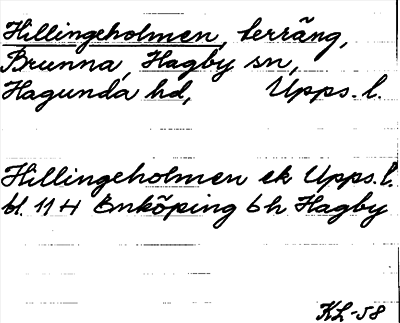 Hillingeholmen, terräng,
Brunna, Hagby sn,
Hagunda hd, Upps. l.
Hillingeholmen ek Upps. l.
bl. 114 Enköping bh Hagby
KL-58